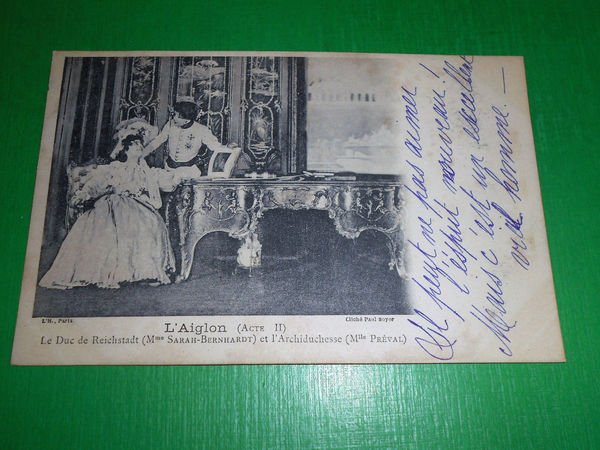 L'H., Paris.
Cliché Paul Boyer
L'Aiglon (Acte II)
Le Duc de Reichstadt (Mme Sarah-Bernhardt) et l'Archiduchesse (Mlle Préval)
Il peut ne pas aimer
l'esprit nouveau!
Mais c'est un excellent
vieil homme. —